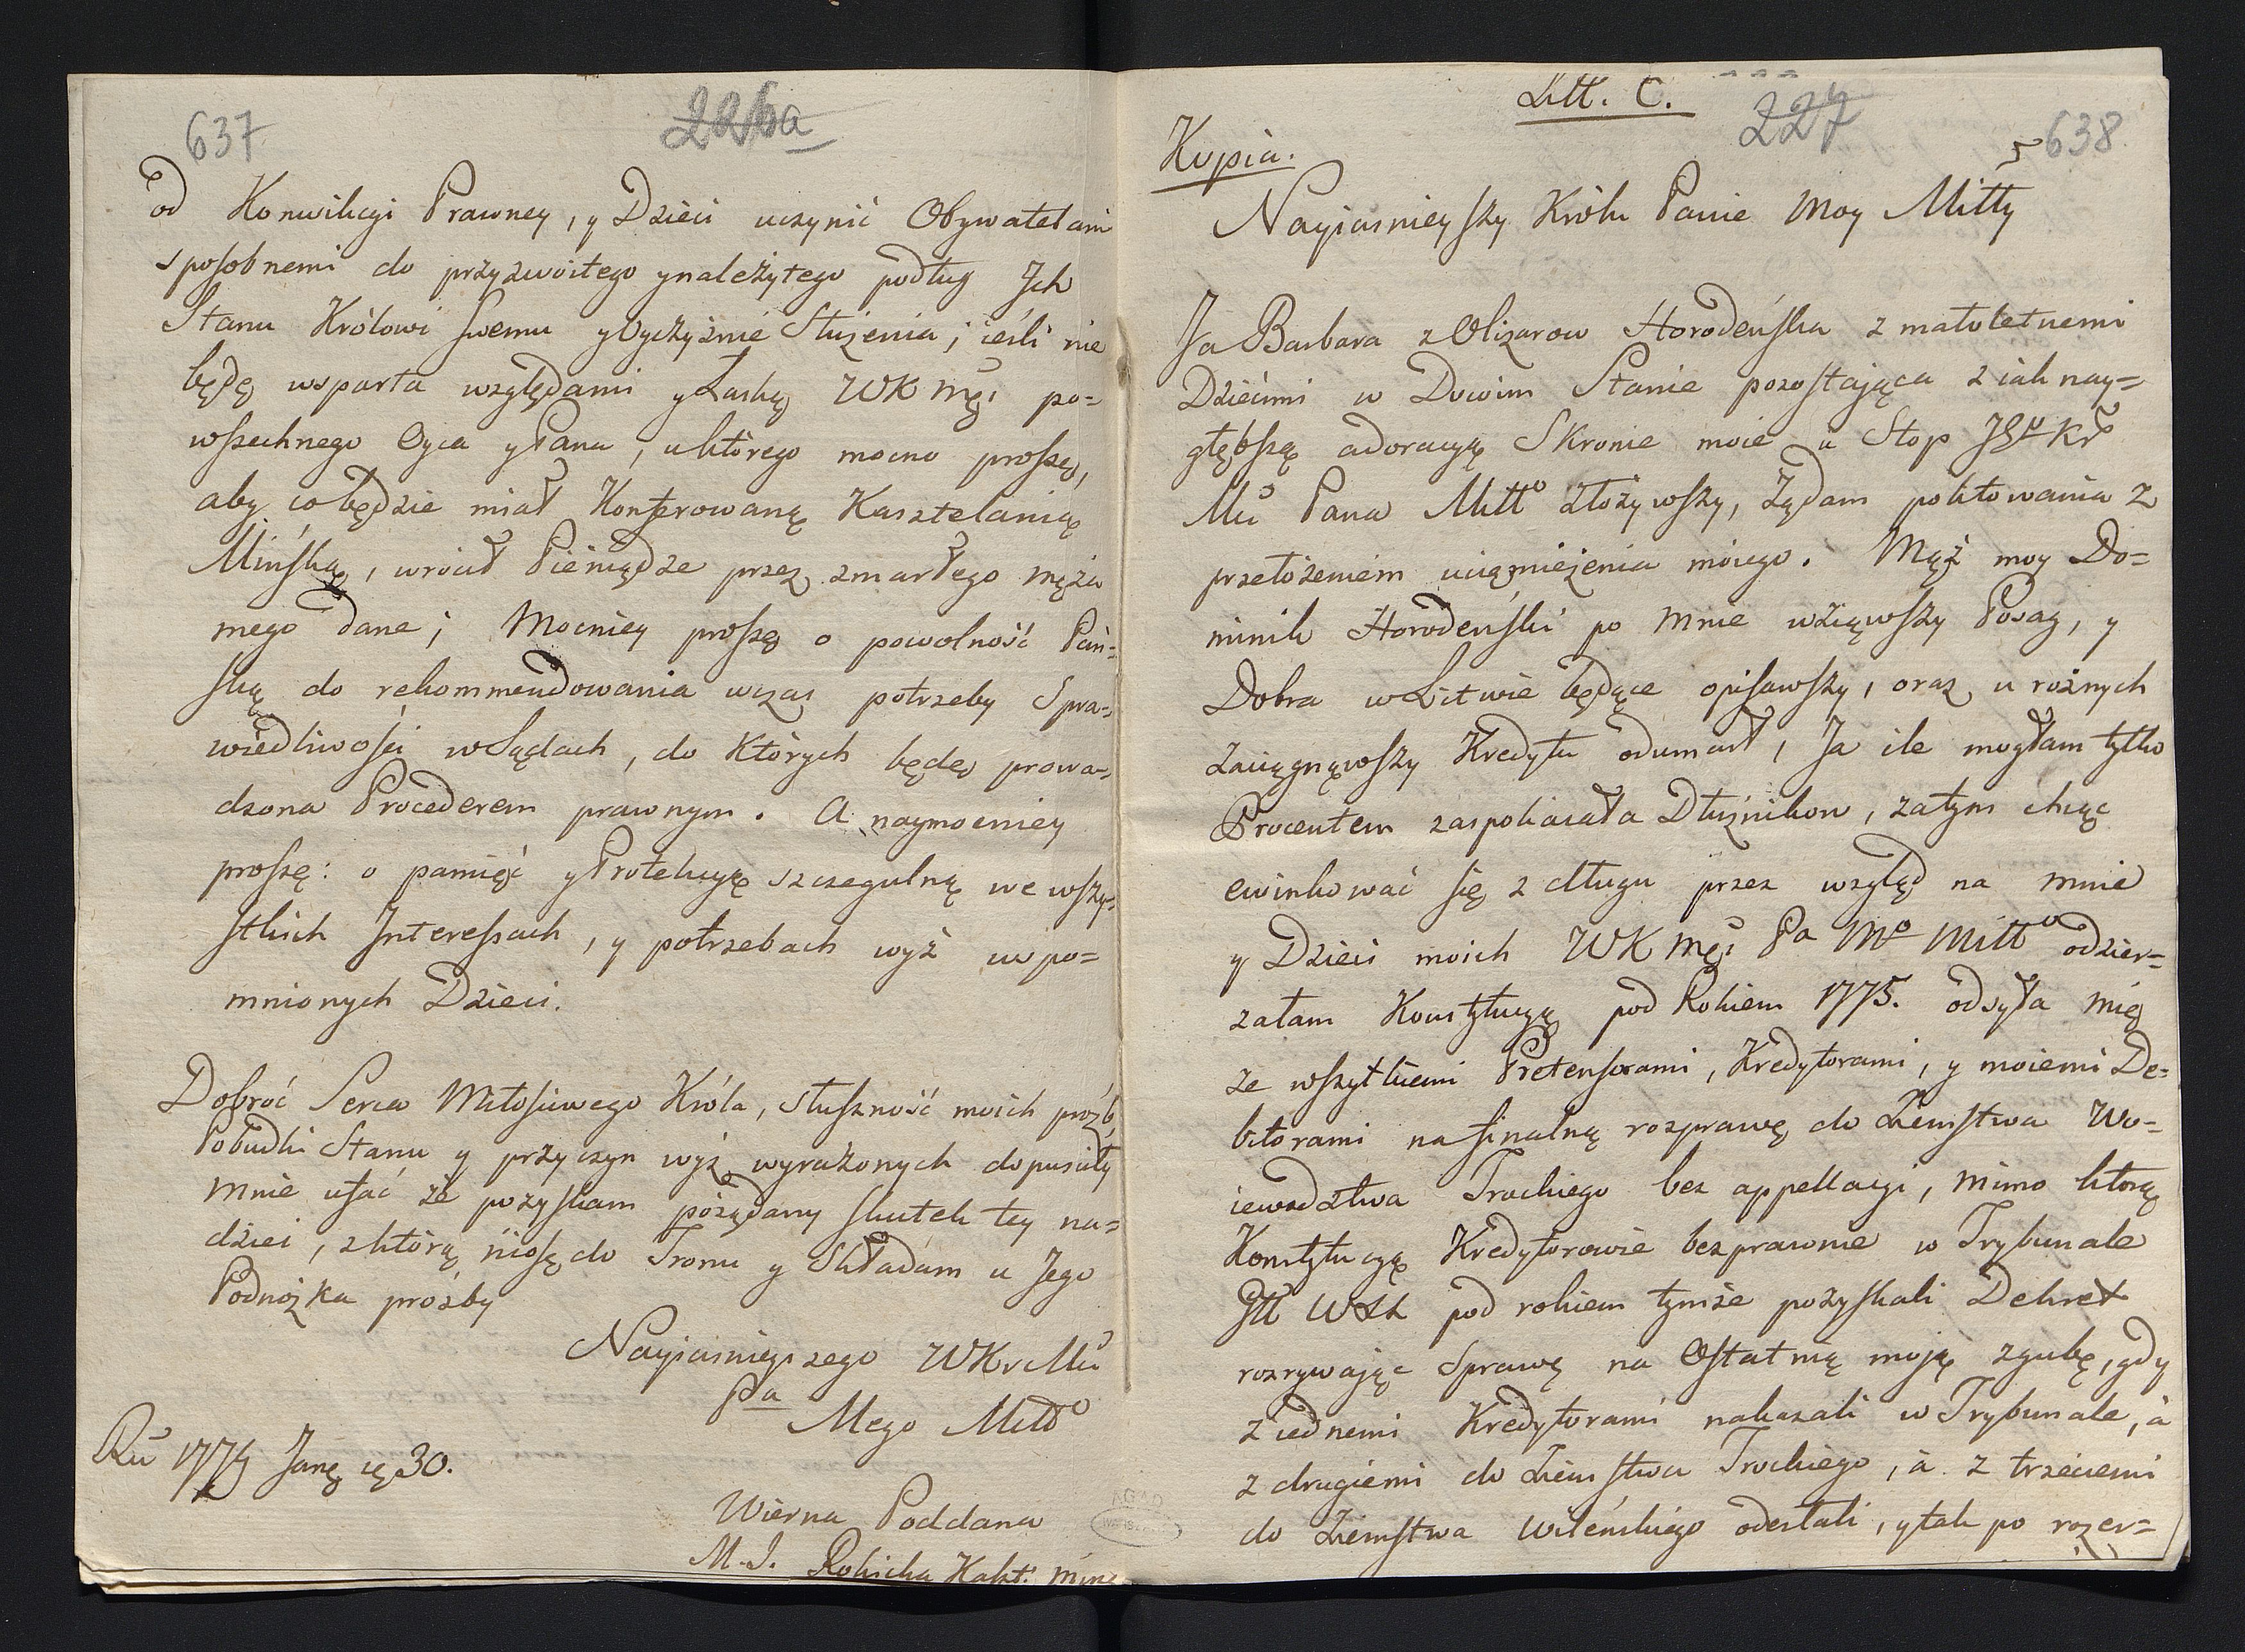 637
226a
od Konwikcyi Prawney, y Dzieci uczynić Obywatelami
sposobnemi do przyzwoitego y należytego podług Ich
Stanu Królowi swemu y Oyczyznie Służenia; ieśli nie
będę wsparta względami y Łaską WKMći po=
wszechnego Oyca y Pana, u którego mocno proszę,
aby co będzie miał Konferowaną Kasztelanią
Mińską, wrócił Pieniądze przez zmarłego męża
mego dane; Mocniey proszę o powolność Pań=
ską do rekommendowania wczas potrzeby Spra=
wiedliwości w Sądach, do Których będę prowa=
dzona Procederem prawnym. A naymocniey
proszę: o pamięć y Protekcyę szczegulną we wszy=
stkich Interessach, y potrzebach wyż wspo=
mnionych Dzieci.
Dobroć Serca Miłościwego Króla, słuszność moich proźb,
Pobudki Stanu y przyczyn wyż wyrażonych dopuściły
mnie ufać że pozyskam pożądany skutek tey na=
dziei, z którą niosę do Tronu y Składam u Jego
Podnożka prozby
Nayiasnieyszego WKrMci
Pa
Mego Miłło
Ru 1774 Janę ię 30.
Wierna Poddana
M. J. Rokicka Kaszt: Miń
Litt. C.
227
5
638
Kopia.
Nayiasnieyszy Królu Panie moy Miłły
Ja Barbara z Olizarow Horodeńska z małoletnemi
Dziećmi w Dowim Stanie pozostaiąca z iak nay=
głębszą adoracyą Skronie moie u Stop JEgo Kr
Mci Pana Miłło złożywszy, żądam politowania z
przełożeniem uciąmiężenia moiego. Mąż moy Do=
minik Horodeński po mnie wziąwszy Posag, y
Dobra w Litwie będące opisawszy, oraz u rożnych
zaciągnąwszy Kredytu odumarł, Ja ile mogłam tylko
Procentem zaspokaiała Dłużnikow, zatym chcąc
ewinkować się z długu przez wzgląd na mnie
y Dzieci moich WKMći Pa Mo Miłło odzier=
załam Konstytucyą pod Rokiem 1775. odsyła mię
ze wszytkiemi Pretensorami, Kredytorami, y moiemi De=
bitorami na finalną rozprawę do Ziemstwa Wo=
iewodztwa Trockiego bez appellacyi, mimo ktorą
Konstytucyą Kredytorowie bezprawnie w Trybunale
Głł WXL pod rokiem tymże pozyskali Dekret
rozrywaiąc Sprawę na Ostatnią moię zgubę, gdy
z iednemi Kredytorami nakazali w Trybunale, à
z drugiemi do Ziemstwa Trockiego, à z trzeciemi
do Ziemstwa Wileńskiego odesłali, y tak po rozer=